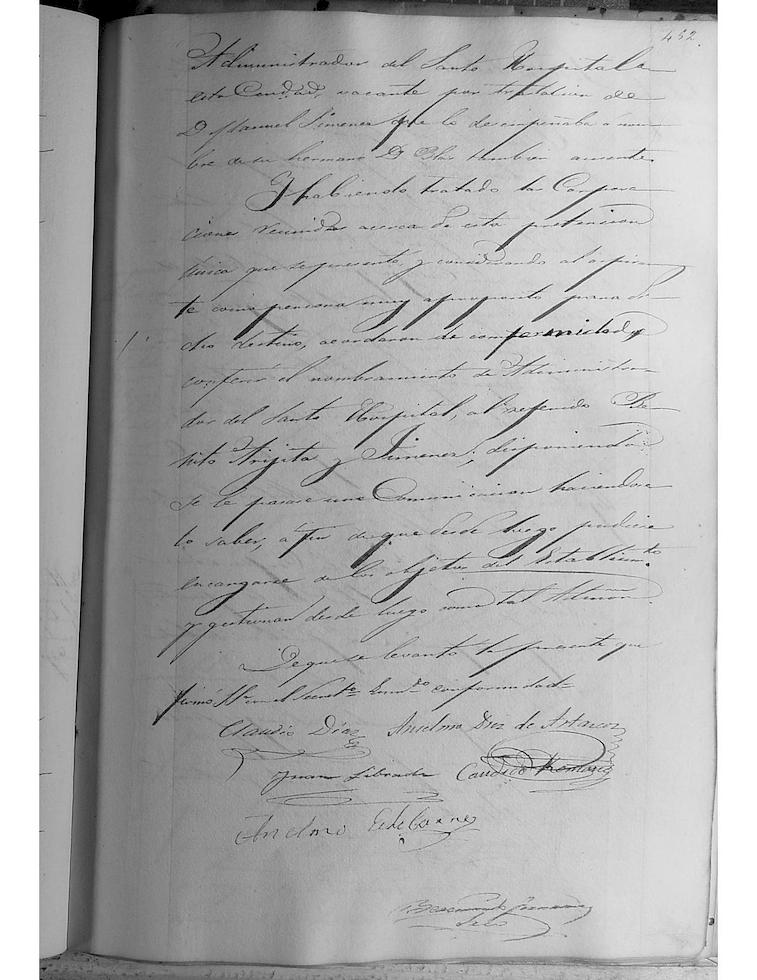 452.
Administrador del Santo Hospital de
esta Ciudad, vacante por traslacion de
D. Manuel Jimenez que lo desempeñaba á nom-
bre de su hermano D. Blas tambien ausente.
Y habiendo tratado las Corpora-
ciones reunidas acerca de esta pretension
única que se presentó, y considerando al aspiran-
te como persona muy aproposito para di-
cho destino, acordaron de conformidad
conferir el nombramiento de Administra-
dor del Santo Hospital, al referido Be-
nito Arijita y Jimenez; disponiendo
se le pasase una Comunicacion haciendose-
lo saber, á fin de que desde luego pudiera
encargarse de los objetos del Establecim.to
y gestionar desde luego como tal Admon.
De que se levantó la presente que
firmó conformidad
Claudio Diaz Anselmo Diez de
Juan Librada Candido
Anselmo
Secrio